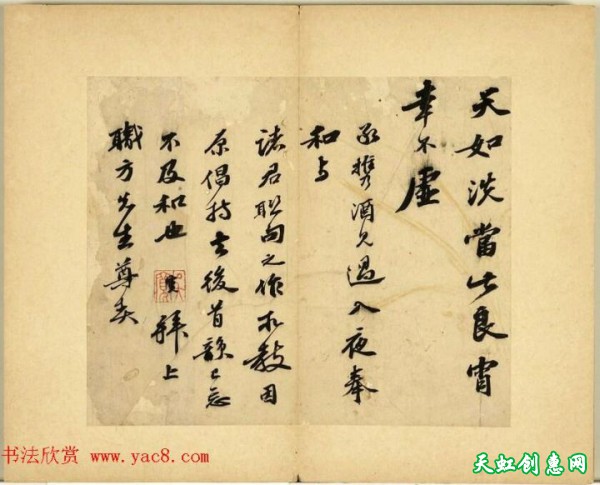 天如洗當此良宵
幸不虛
承携酒見過入夜奉
和與
諸君聯句之作求教因
原倡持去後首韻已忘
不及和也 寬 拜上
職方先生尊契
书法欣赏 www.yac8.com
天虹创惠网